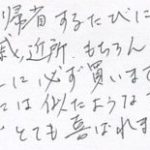 帰省するたびに
戚、近所、もちろん
に必ず買います
には似たような
とても喜ばれま